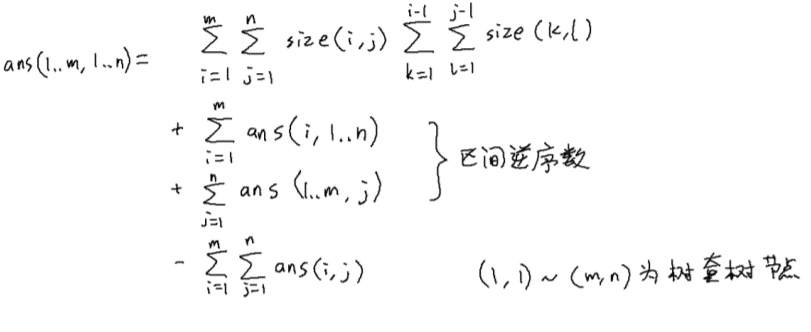 ans(1..m, 1..n) = \sum_{i=1}^{m} \sum_{j=1}^{n} size(i,j) \sum_{k=1}^{i-1} \sum_{l=1}^{j-1} size(k,l)
+ \sum_{i=1}^{m} ans(i, 1..n)
+ \sum_{j=1}^{n} ans(1..m, j) } 区间逆序数
- \sum_{i=1}^{m} \sum_{j=1}^{n} ans(i,j) (1,1) ~ (m,n) 为树套树节点